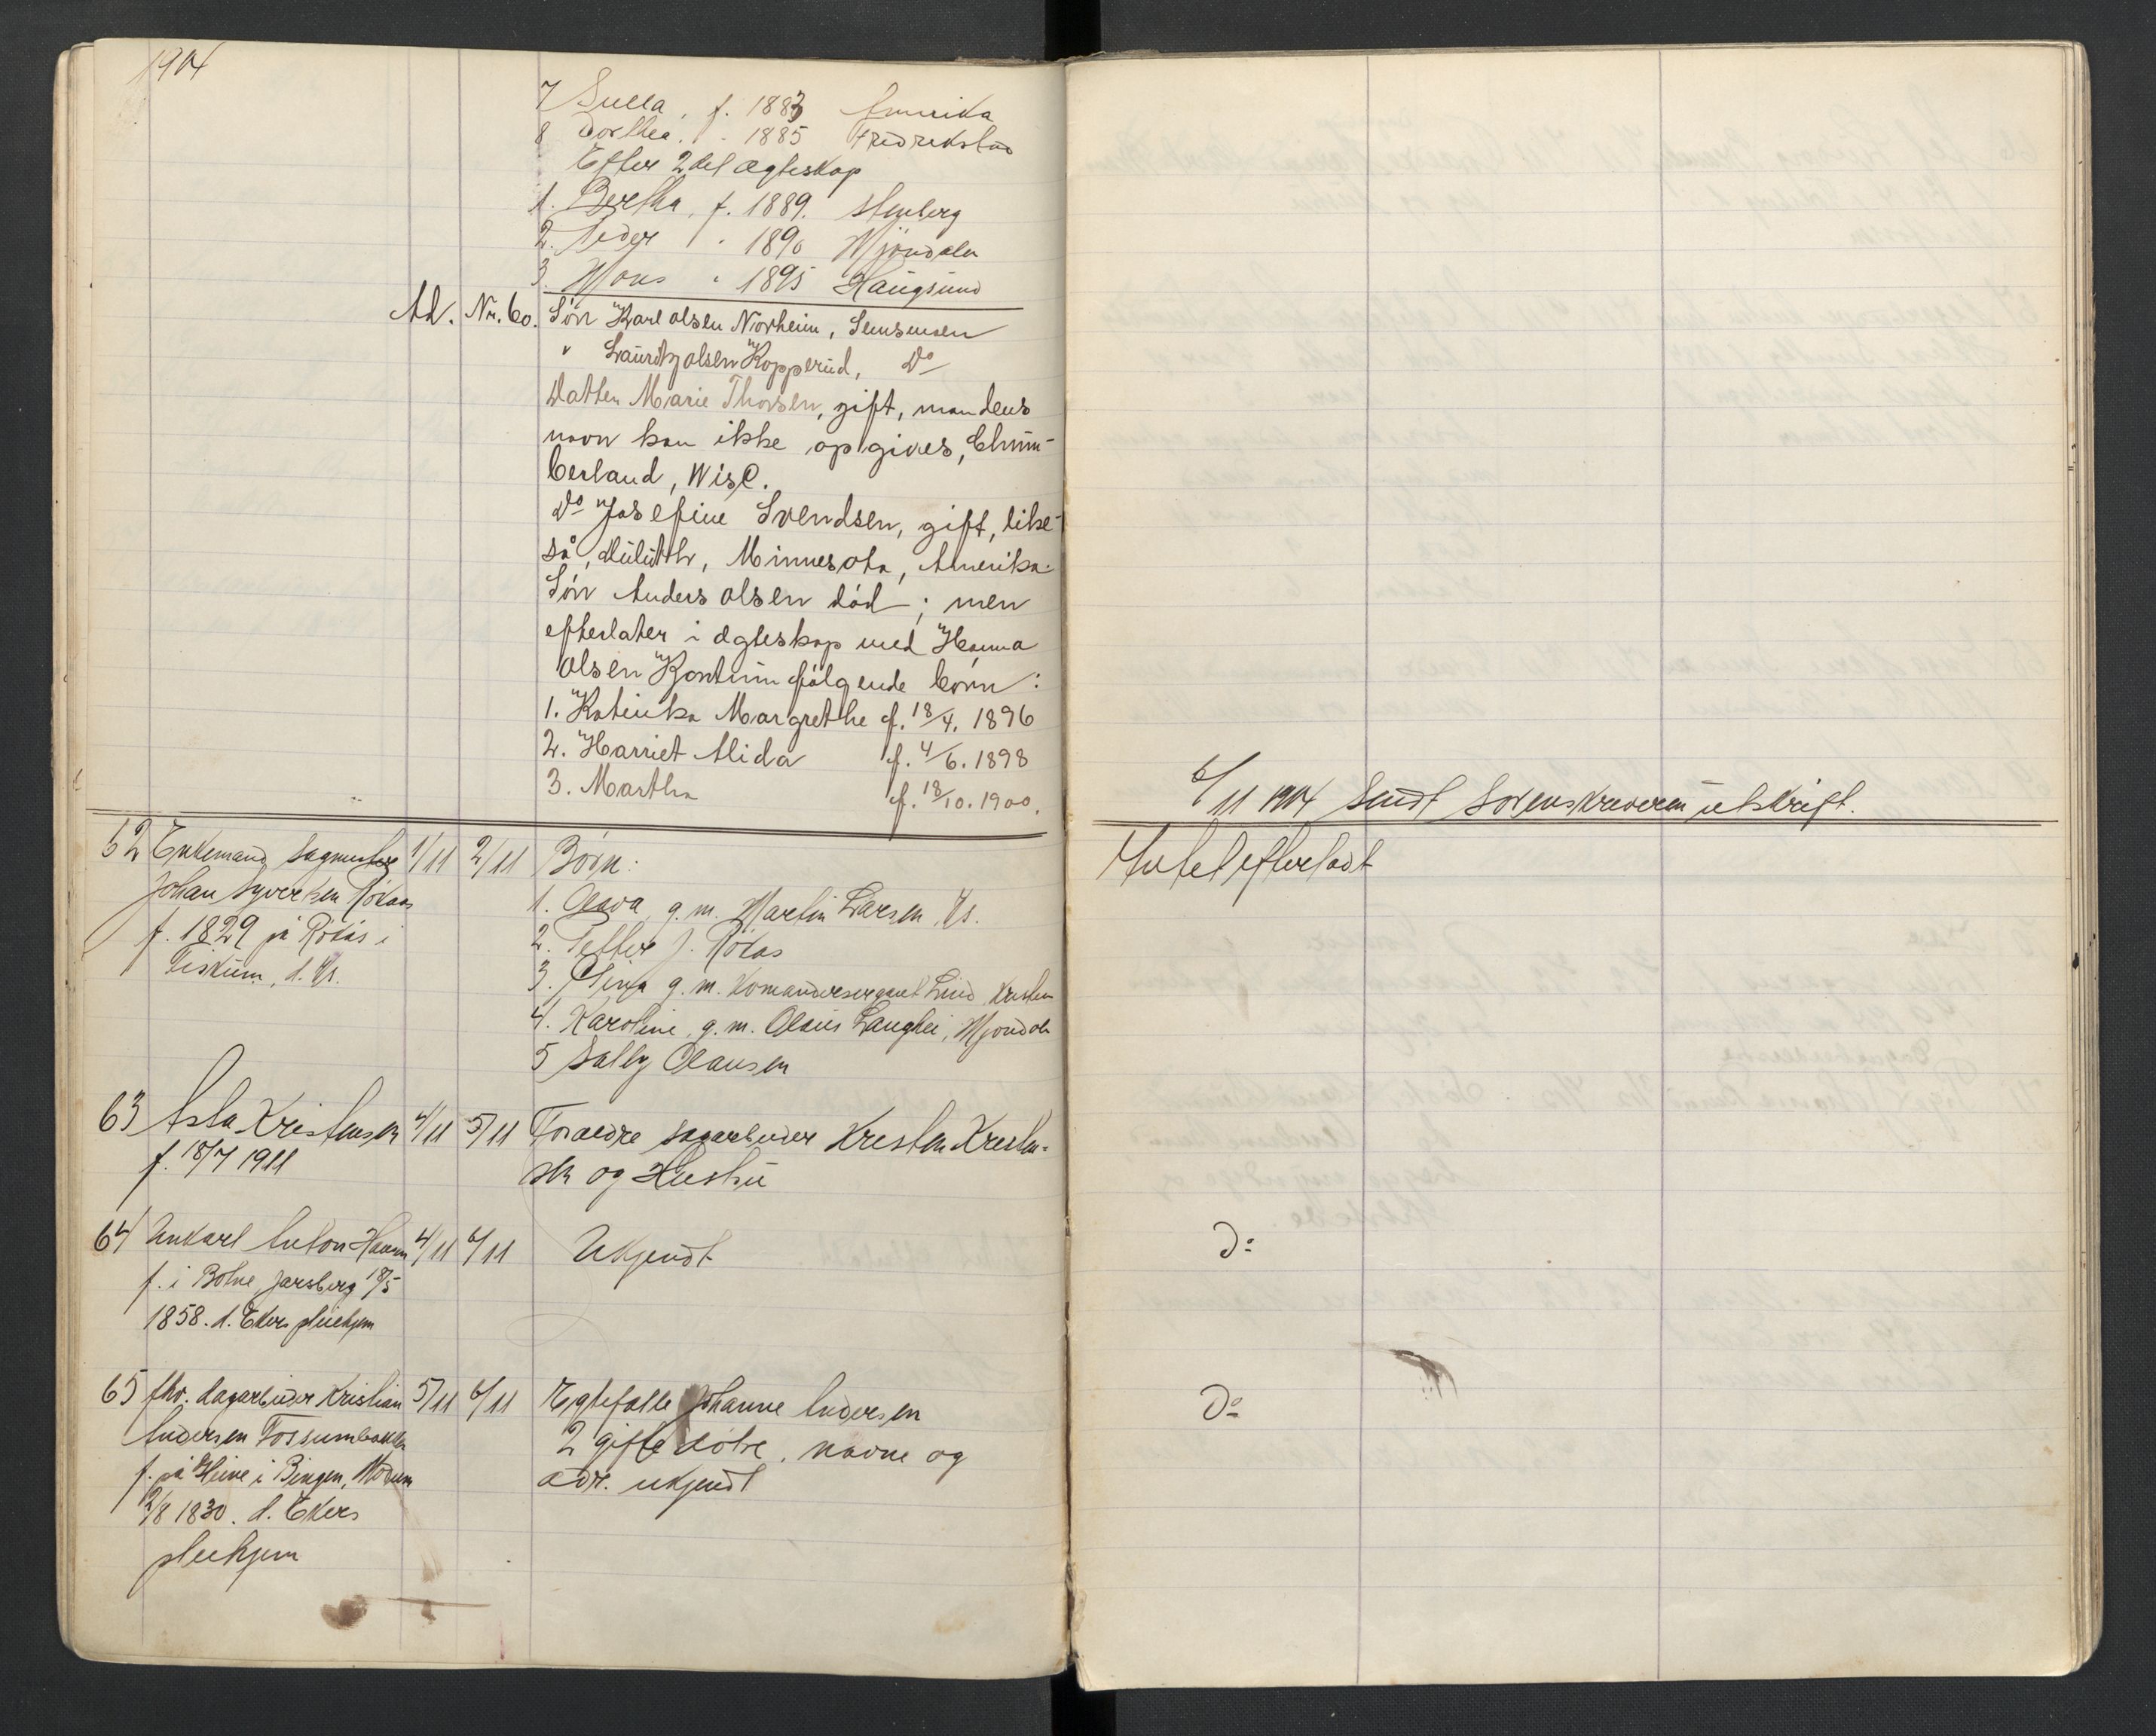 1914
7 Sulla, f. 1883 Amerika
8 Dorthea. " - 1885 Fredrekstad
Efter 2det ægteskap
1. Bertha, f. 1889. Stenberg
2. Peder " 1890 Mjöndalen
3. Mons " 1895 Haugsund
Ad. Nr. 60. Sön Karl Olsen Norheim, Semsmoen
" Lauritz Olsen Kopperud, Do
Datter Marie Thorsen, gift, mandens
navn kan ikke opgives, Chum-
berland, Wisc.
Do Josefine Svendsen, gift, like-
så, Duluth, Minnesota, Amerika.
Sön Anders Olsen död; men
efterlater i ægteskap med Hanna
Olsen følgende börn:
1. Katinka Margrethe f. 18/4. 1896
2. Harriet Alida f. 4/6. 1898
3. Martha f. 18/10. 1900.
6/11 1914 Sendt Sorenskriveren utskrift.
62 Enkemand sagmester 1/11 2/11 Börn: Intet efterladt
Johan Syversen Rökaas
f. 1829 på Rökås i
Fiskum, d. Hs.
1. Olava, g. m. Martin Larsen, Hs.
2. Petter J. Rökås
3. g. m. Komandersergant Lind, Kristen
4. Karoline, g. m. Olaus Langlei, Mjöndalen
5 Sally Olausen
63 Asta Kristensen 4/11 5/11 Forældre sagarbeider Kristen Kristen-
f. 18/7 1911
sen og Hustru
64 Unkarl Anton Hansen 4/11 6/11 Ukjendt Do
f. i Botne, Jarsberg 18/5
1858. d. Ekers pleiehjem
65 fhv. dagarbeider Kristian 5/11 6/11 Egtefælle Johanne Andersen Do
Andersen Fossumbakken 2 gifte dötre, navne og
f. på Heine i Bingen, Modum adr. ukjendt
12/8 1830. d. Ekers
pleiehjem